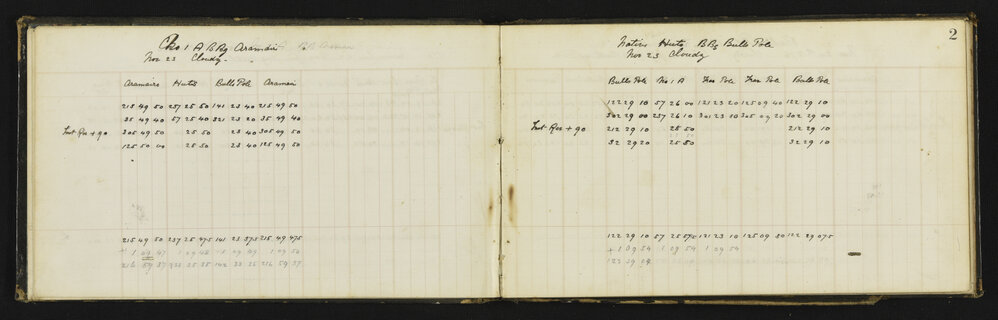 No 1 A B Rg Aramais
Nov 23 Cloudy.
Aramairs Huts Bulls Pole Aramair
215 49 50 237 25 50 141 23 40 215 49 50
35 49 40 57 25 40 321 23 20 35 49 40
Inst Rev + 90 305 49 50 25 50 23 40 305 49 50
125 50 00 25 50 23 40 125 49 50
215 49 50 237 25 475 141 23 375 215 49 475
+ 1 09 47 1 09 48 1 09
216 59 37 238 35 35 142 33 25 216 59 37
2
Natives Huts B Rg Bulls Pole
Nov 23 Cloudy
Bulls Pole No 1 A Tree Pole Tree Pole Bulls Pole
122 29 10 57 26 00 121 23 20 125 09 40 122 29 10
302 29 00 237 26 10 301 23 10 305 09 20 302 29 00
Inst Rev + 90 212 29 10 25 50 212 29 10
32 29 20 25 50 32 29 10
122 29 10 57 25 575 121 23 10 125 09 30 122 29 075
+ 1 09 54 1 09 54 1 09 54
122 39 04